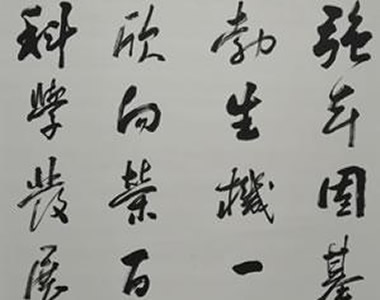 强年固基
勃生機一
欣向榮百
科學發展